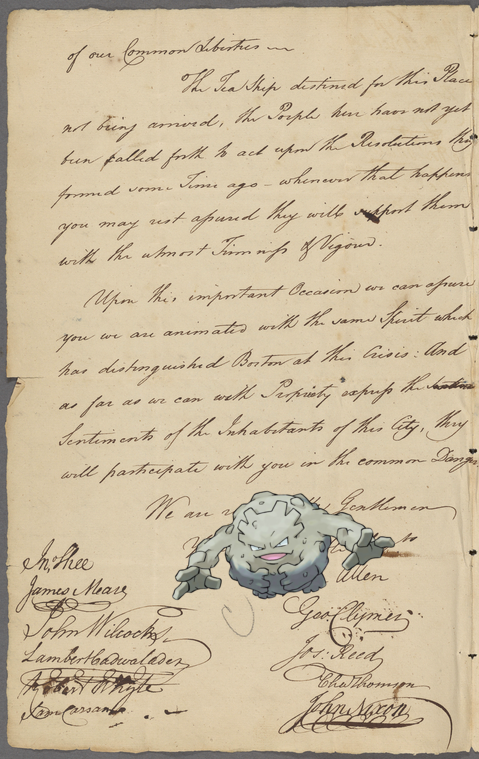 of our Common Liberties
The Tea Ship destined for this Place
not being arrived, the People here have not yet
been called forth to act upon the Resolutions they
formed some Time ago – whenever that happens
you may rest assured they will support them
with the utmost Firmness & Vigour.
Upon this important Occasion we can assure
you we are animated with the same Spirit which
has distinguished Boston at this Crisis: And
as far as we can with Propriety express the
Sentiments of the Inhabitants of this City, they
will participate with you in the common Danger.
We are Gentlemen
Jn. Shee
James Mease
John Wilcocks
Lambert Cadwalader
Sam Carsan
Allen
Geo: Clymer
Jos: Reed
Cha Thomson
John Nixon